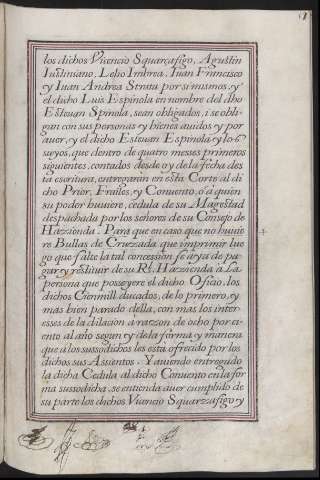 los dichos Vicencio Squarçafigo, Agustin
Iustiniano, Lelio Imbrea, Iuan Francisco
y Iuan Andrea Strata por si mismos, y
el dicho Luis Espinola en nombre del dho
Esteuan Spinola, sean obligados, i se obli
gan con sus personas y bienes auidos y por
auer, y el dicho Esteuan Espinola y los
suyos, que dentro de quatro meses primeros
siguientes, contados desde oy dela fecha des
ta escritura, entregarán en esta Corte al di
cho Prior, Frailes, y Conuento, ó a quien
su poder huuiere, cedula de su Magestad
despachada por los señores de su Consejo de
Hazzienda. Para que en caso que no huuie
re Bullas de Cruzada que imprimir lue
go que falte la tal concession se aya de pa
gar, y restituir de su Rl. Hazzienda a La
persona que posseyere el dicho Oficio, los
dichos Cienmill ducados, de lo primero, y
mas bien parado della, con mas los inter
esses de la dilacion a razon de ocho por ci
ento al año segun y de la forma y manera
que a los sussodichos les está ofrecido por los
dichos sus Assientos. Y auiendo entregado
la dicha Cedula al dicho Conuento en la for
ma sussodicha, se entienda auer cumplido de
su parte los dichos Vicencio Squarzafigo y